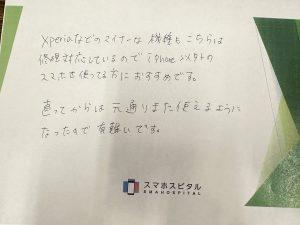 Xperiaなどのマイナーな機種もこちらは
修理対応しているのでiPhone以外の
スマホを使ってる方におすすめです。
直ってからは元通りまた使えるように
なったので有難いです。
スマホスピタル
SMAHOSPITAL